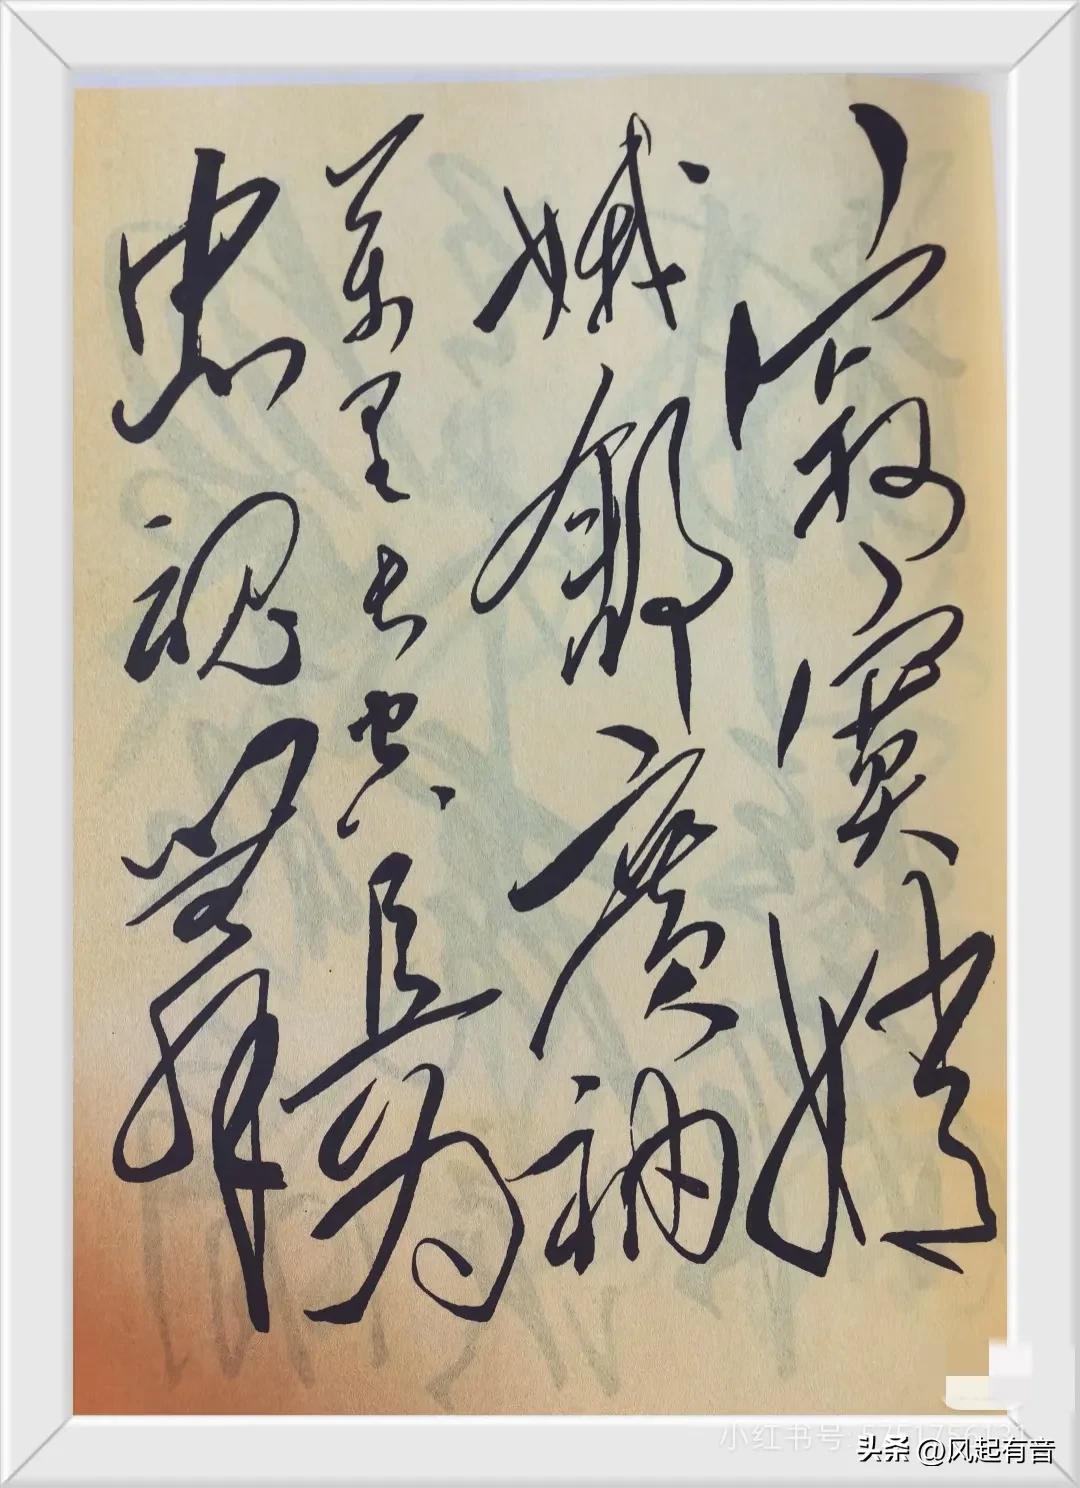 寂寞嫦
娥舒广袖
万里长空且为
忠魂舞
小红书号:5751756131
头条 @风起有音